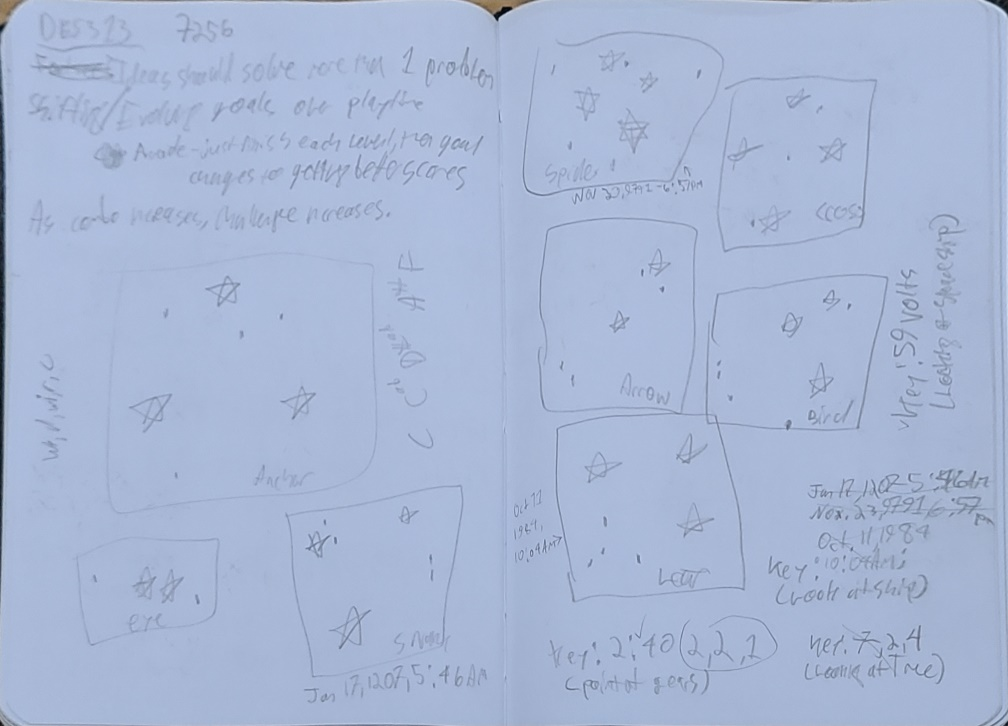 DES313 7256
Ideas should solve more than 1 problem
Shifting/Evolving goals over playtime
Arcade-just finish each level, then goal
changes to getting better scores
As combo increases, challenge increases.
Anchor
eye
Snake
Jan 17, 1207, 5:46 AM
Spider
Nov 23, 9791-6:57PM
Cross
Arrow
Bird
Key: 59 volts
(Looking at Spaceship)
Oct 11
1984,
10:04AM
Leaf
Jan 17, 1207 5:46AM
Nov. 23, 9791 6:57
PM
Oct. 11, 1984
Key: 10:04AM;
(Look at ship)
Key: 2:40 (2,2,1)
(point at gears)
Key: 7,2,4
(Looking at Tree)